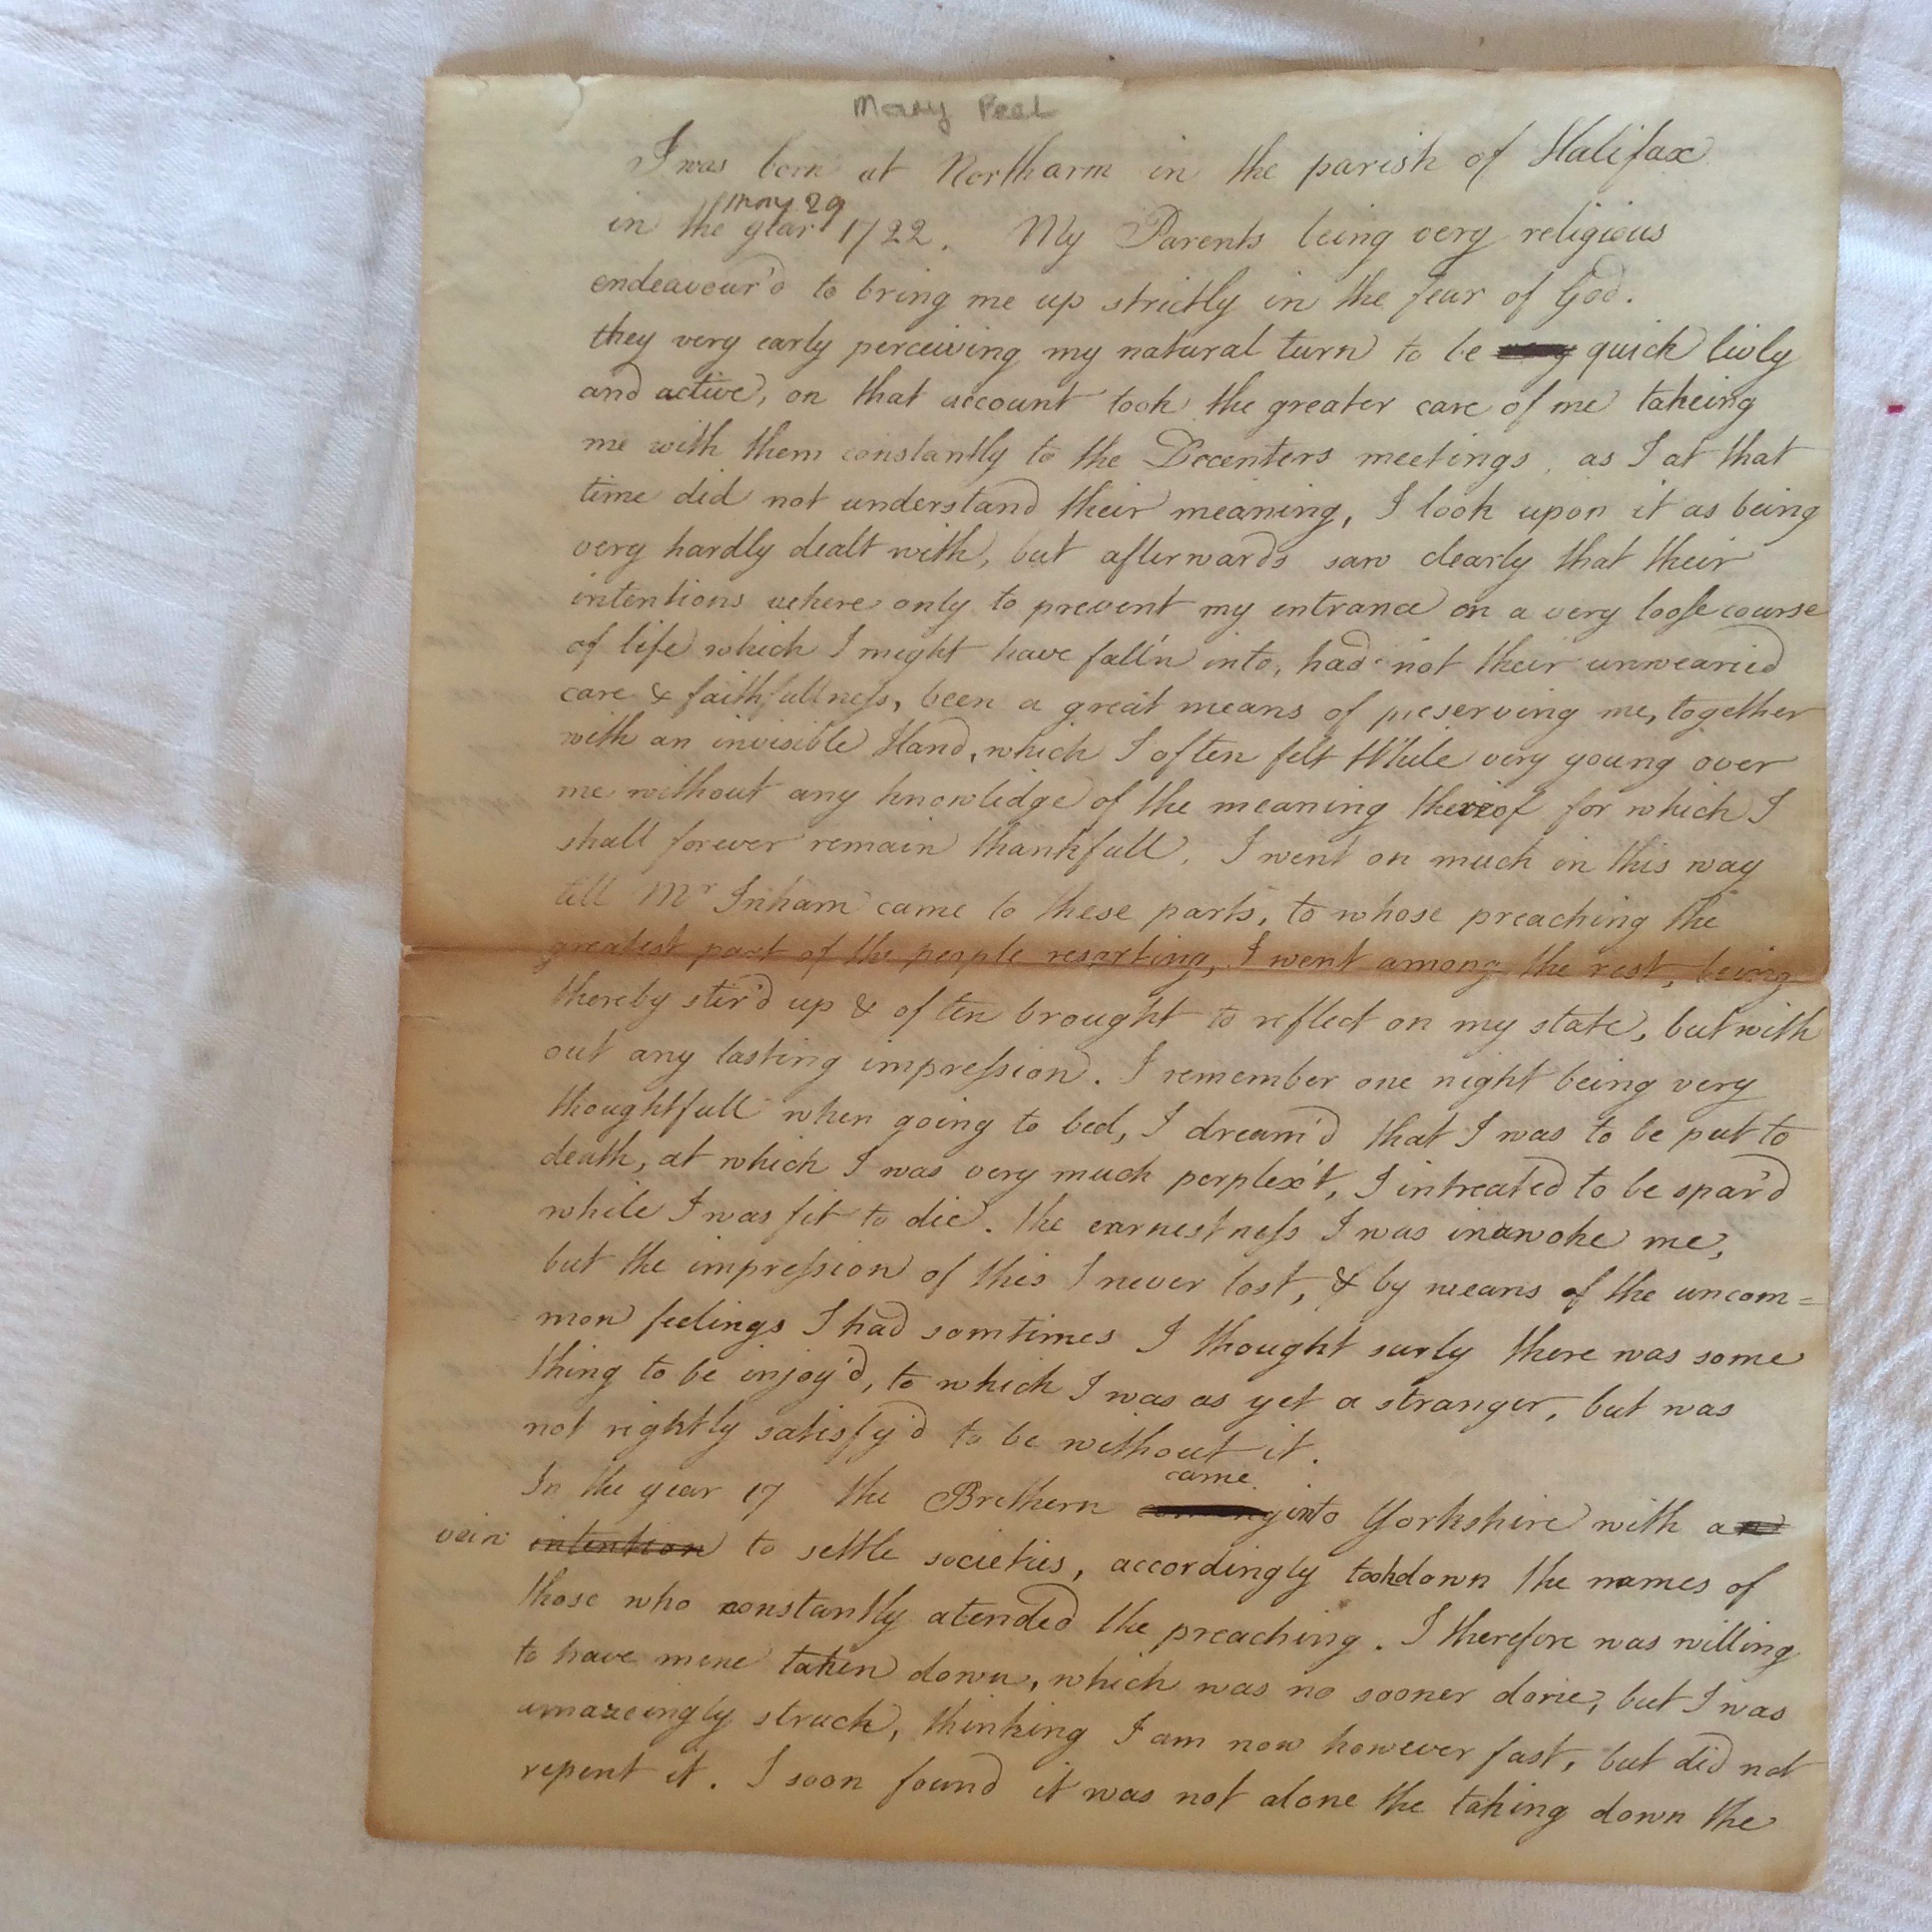 Mary Peel
I was born at Northarm in the parish of Halifax
May 29
in the year 1722. My Parents being very religious
endeavour'd to bring me up strictly in the fear of God.
they very early perceiving my natural turn to be very quick livly
and active, on that account took the greater care of me takeing
me with them constantly to the Decenters meetings. as I at that
time did not understand their meaning, I look upon it as being
very hardly dealt with, but afterwards saw clearly that their
intentions where only to prevent my entrance on a very loose course
of life which I might have fall'n into, had not their unwearied
care & faithfullness, been a great means of preserving me, together
with an invisible Hand, which I often felt While very young over
me without any knowlidge of the meaning thereof for which I
shall forever remain thankfull. I went on much in this way
till Mr Inham came to these parts, to whose preaching the
greatest part of the people resorting, I went among the rest, being
thereby stir'd up & often brought to reflect on my state, but with
out any lasting impression. I remember one night being very
thoughtfull when going to bed, I dream'd that I was to be put to
death, at which I was very much perplex't, I intreated to be spar'd
while I was fit to die. the earnestness I was in awoke me,
but the impression of this I never lost, & by means of the uncom=
mon feelings I had somtimes I thought surly there was some
thing to be injoy'd, to which I was as yet a stranger, but was
not rightly satisfy'd to be without it.
came
In the year 17 the Brethern coming into Yorkshire with an
vein intention to settle societies, accordingly took down the names of
those who constantly atended the preaching. I therefore was willing
to have mine taken down, which was no sooner done, but I was
amazeingly struck, thinking I am now however fast, but did not
repent it. I soon found it was not alone the taking down the